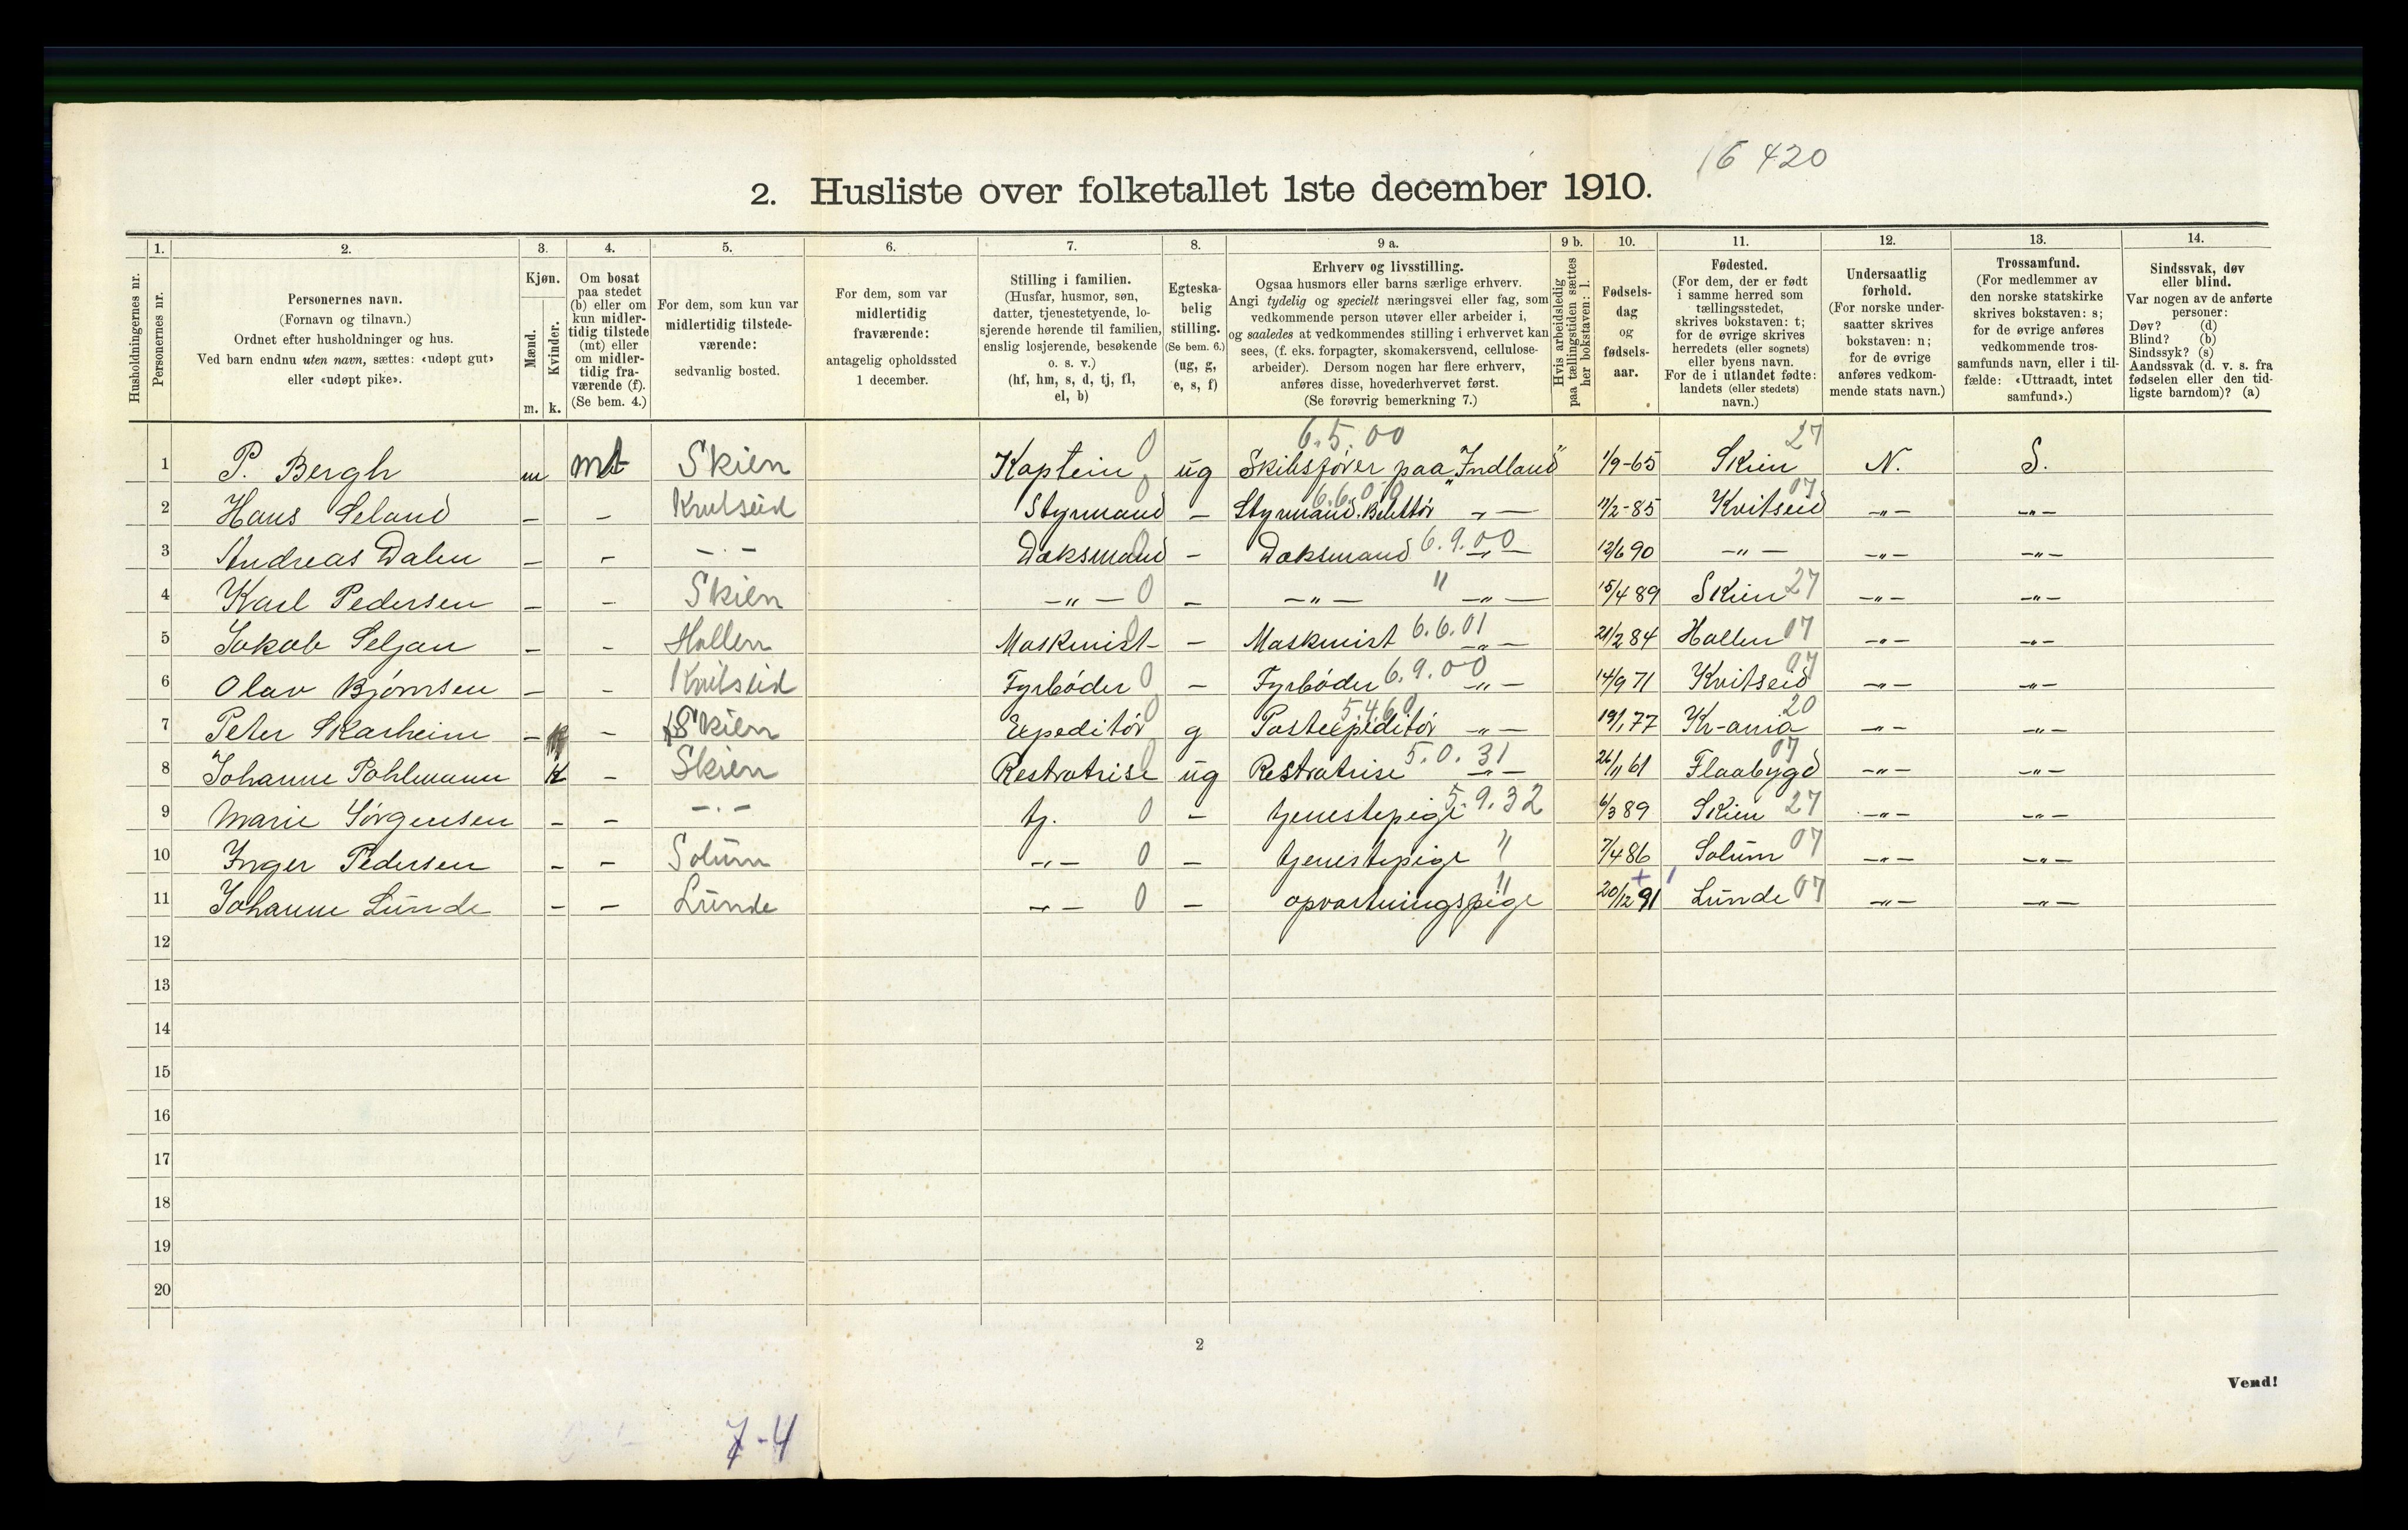 16 420
2. Husliste over folketallet 1ste december 1910.
Husholdningernes nr.
1.
Personernes nr.
2.
Personernes navn.
(Fornavn og tilnavn.)
Ordnet efter husholdninger og hus.
Ved barn endnu uten navn, sættes: «udøpt gut»
eller «udøpt pike».
3.
Kjøn.
Mænd.
Kvinder.
m. k.
4.
Om bosat
paa stedet
(b) eller om
kun midler-
tidig tilstede
(mt) eller
om midler-
tidig fra-
værende (f).
(Se bem. 4.)
5.
For dem, som kun var
midlertidig tilstede-
værende:
sedvanlig bosted.
6.
For dem, som var
midlertidig
fraværende:
antagelig opholdssted
1 december.
7.
Stilling i familien.
(Husfar, husmor, søn,
datter, tjenestetyende, lo-
sjerende hørende til familien,
enslig losjerende, besøkende
o. s. v.)
(hf, hm, s, d, tj, fl,
el, b)
8.
Egteska-
belig
stilling.
(Se bem. 6.)
(ug, g,
e, s, f)
9 a.
Erhverv og livsstilling.
Ogsaa husmors eller barns særlige erhverv.
Angi tydelig og specielt næringsvei eller fag, som
vedkommende person utøver eller arbeider i,
og saaledes at vedkommendes stilling i erhvervet kan
sees, (f. eks. forpagter, skomakersvend, cellulose-
arbeider). Dersom nogen har flere erhverv,
anføres disse, hovederhvervet først.
(Se forøvrig bemerkning 7.)
9 b.
Hvis arbeidsledig
paa tællingstiden sættes
her bokstaven: l.
10.
Fødsels-
dag
og
fødsels-
aar.
11.
Fødested.
(For dem, der er født
i samme herred som
tællingsstedet,
skrives bokstaven: t;
for de øvrige skrives
herredets (eller sognets)
eller byens navn.
For de i utlandet fødte:
landets (eller stedets)
navn.)
12.
Undersaatlig
forhold.
(For norske under-
saatter skrives
bokstaven: n;
for de øvrige
anføres vedkom-
mende stats navn.)
13.
Trossamfund.
(For medlemmer av
den norske statskirke
skrives bokstaven: s;
for de øvrige anføres
vedkommende tros-
samfunds navn, eller i til-
fælde: «Uttraadt, intet
samfund».)
14.
Sindssvak, døv
eller blind.
Var nogen av de anførte
personer:
Døv? (d)
Blind? (b)
Sindssyk? (s)
Aandssvak (d. v. s. fra
fødselen eller den tid-
ligste barndom)? (a)
6.5.00 27
1 P. Bergh m mt Skien Kaptein 0 ug Skibsfører paa „Indland" 1/9-65 Skien N. S.
6.6.00 07
2 Hans Seland – – Kvitseid Styrmand – Styrmand. Billettør -„- 11/2-85 Kvitseid -„- -„-
3 Andreas Dalen – – -„- Dæksmand – Dæksmand 6.9.00 -„- 12/6 90 -„- -„- -„-
4 Karl Pedersen – – Skien -„- 0 – -„- " -„- 15/4 89 Skien 27 -„- -„-
5 Jakob Seljan – – Hollen Maskinist 0 – Maskinist 6.6.01 -„- 21/2 84 Hollen 07 -„- -„-
6 Olav Bjørnsen – – Kvitseid Fyrbøder 0 – Fyrbøder 6.9.00 -„- 14/9 71 Kvitseid 07 -„- -„-
5.4.60 20
7 Peter Skarheim – – Skien Expeditør 0 g Postexpeditør -„- 19/1 77 Kr-ania -„- -„-
8 Johanne Pohlmann k – Skien Restratrise 0 ug Restratrise 5.0.31 -„- 26/11 61 Flaabygd 07 -„- -„-
9 Marie Jørgensen – – -„- tj. 0 – tjenestepige 5.9.32 6/3 89 Skien 27 -„- -„-
10 Inger Pedersen – – Solum -„- 0 – tjenestepige " 7/4 86 Solum 07 -„- -„-
11 Johanne Lunde – – Lunde -„- 0 – opvartningspige " 20/12 91 Lunde 07 -„- -„-
12
13
14
15
16
17
18
19
20
2
Vend!
7-4